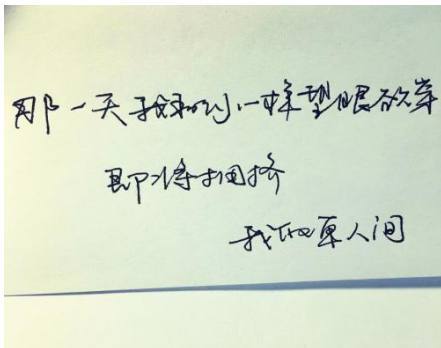 那一天我和你一样望眼欲穿
即将拥挤
我的夏人间